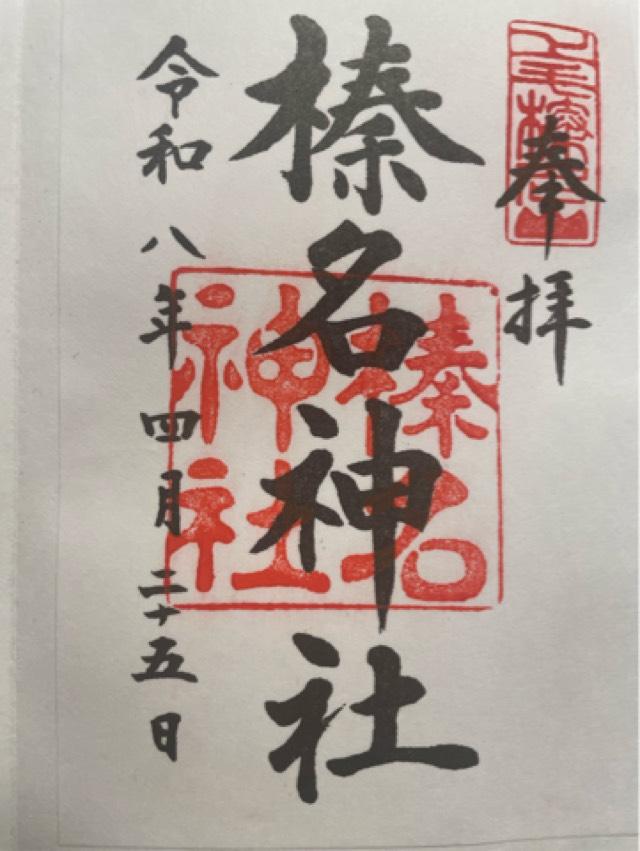 奉拝
上毛榛名山
榛名神社
榛名
神社
令和八年四月二十五日